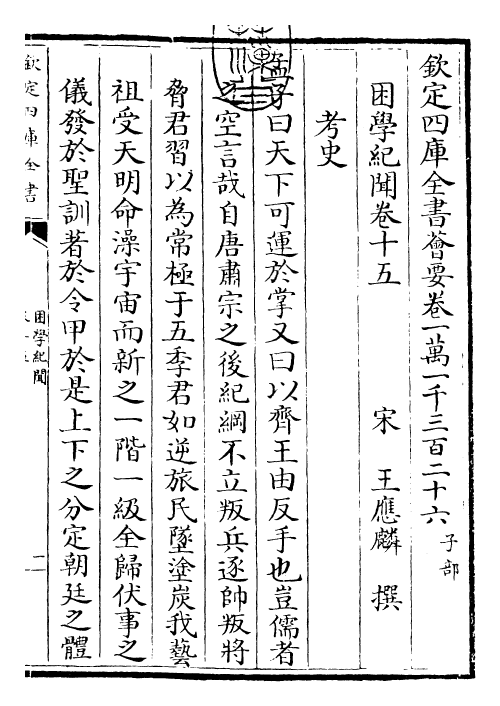 欽定四庫全書薈要卷一萬一千三百二十六 子部
困學紀聞卷十五 宋 王應麟 撰
考史
孟子曰天下可運於掌又曰以齊王由反手也豈儒者
之空言哉自唐肅宗之後紀綱不立叛兵逐帥叛將
脅君習以為常極于五季君如逆旅民墜塗炭我藝
祖受天明命澡宇宙而新之一階一級全歸伏事之
儀發於聖訓著於令甲於是上下之分定朝廷之體
欽定四庫全書
困學紀聞